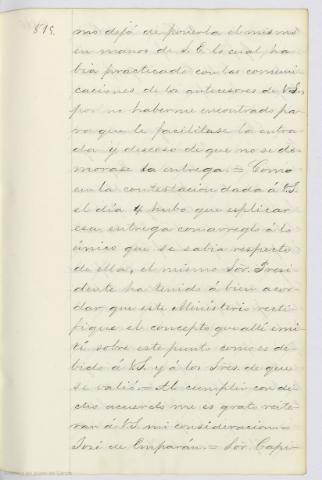 815.
mas dejó de ponerla el mismo
en manos de S. E. lo cual, ha
bia practicado con las comuni
caciones de los antecesores de V.S.,
por no haberme encontrado pa
ra que le facilitase la entra
da y deseoso de que no se de
morase la entrega. = Como
en la contestacion dada á V.S.
el dia 4 hubo que esplicar
esa entrega con arreglo á lo
único que se sabia respecto
de ella, el mismo Sor. Presi
dente ha tenido á bien acor
dar que este Ministerio recti
fique el concepto que allí emi
tí sobre este punto como es de
bido á V.S. y á los Sres. de que
se valió. = Al cumplir con di
cho acuerdo me es grato reite
rar á V.S. mi consideracion. =
José de Emparán. = Sor. Capi-